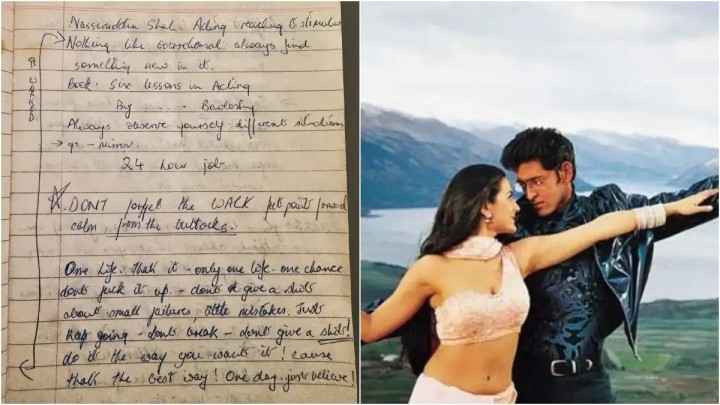 Nasseruddin Shah. Acting reacting to stimulus
Nothing like overrehearsal always find
something new in it.
REWARDED
Book. Six lessons in Acting
By .. .. ..
Always observe yourself different situations
→ - mirror.
24 hour job
DONT forget the WALK feet point forward
calm from the buttocks.
One life. that's it - only one life. one chance
dont fuck it up - don't give a shit
about small failures. little mistakes. Just
Kap going - don't break - don't give a shit!
do it the way you want it! cause
that's the best way! One day.. just believe!